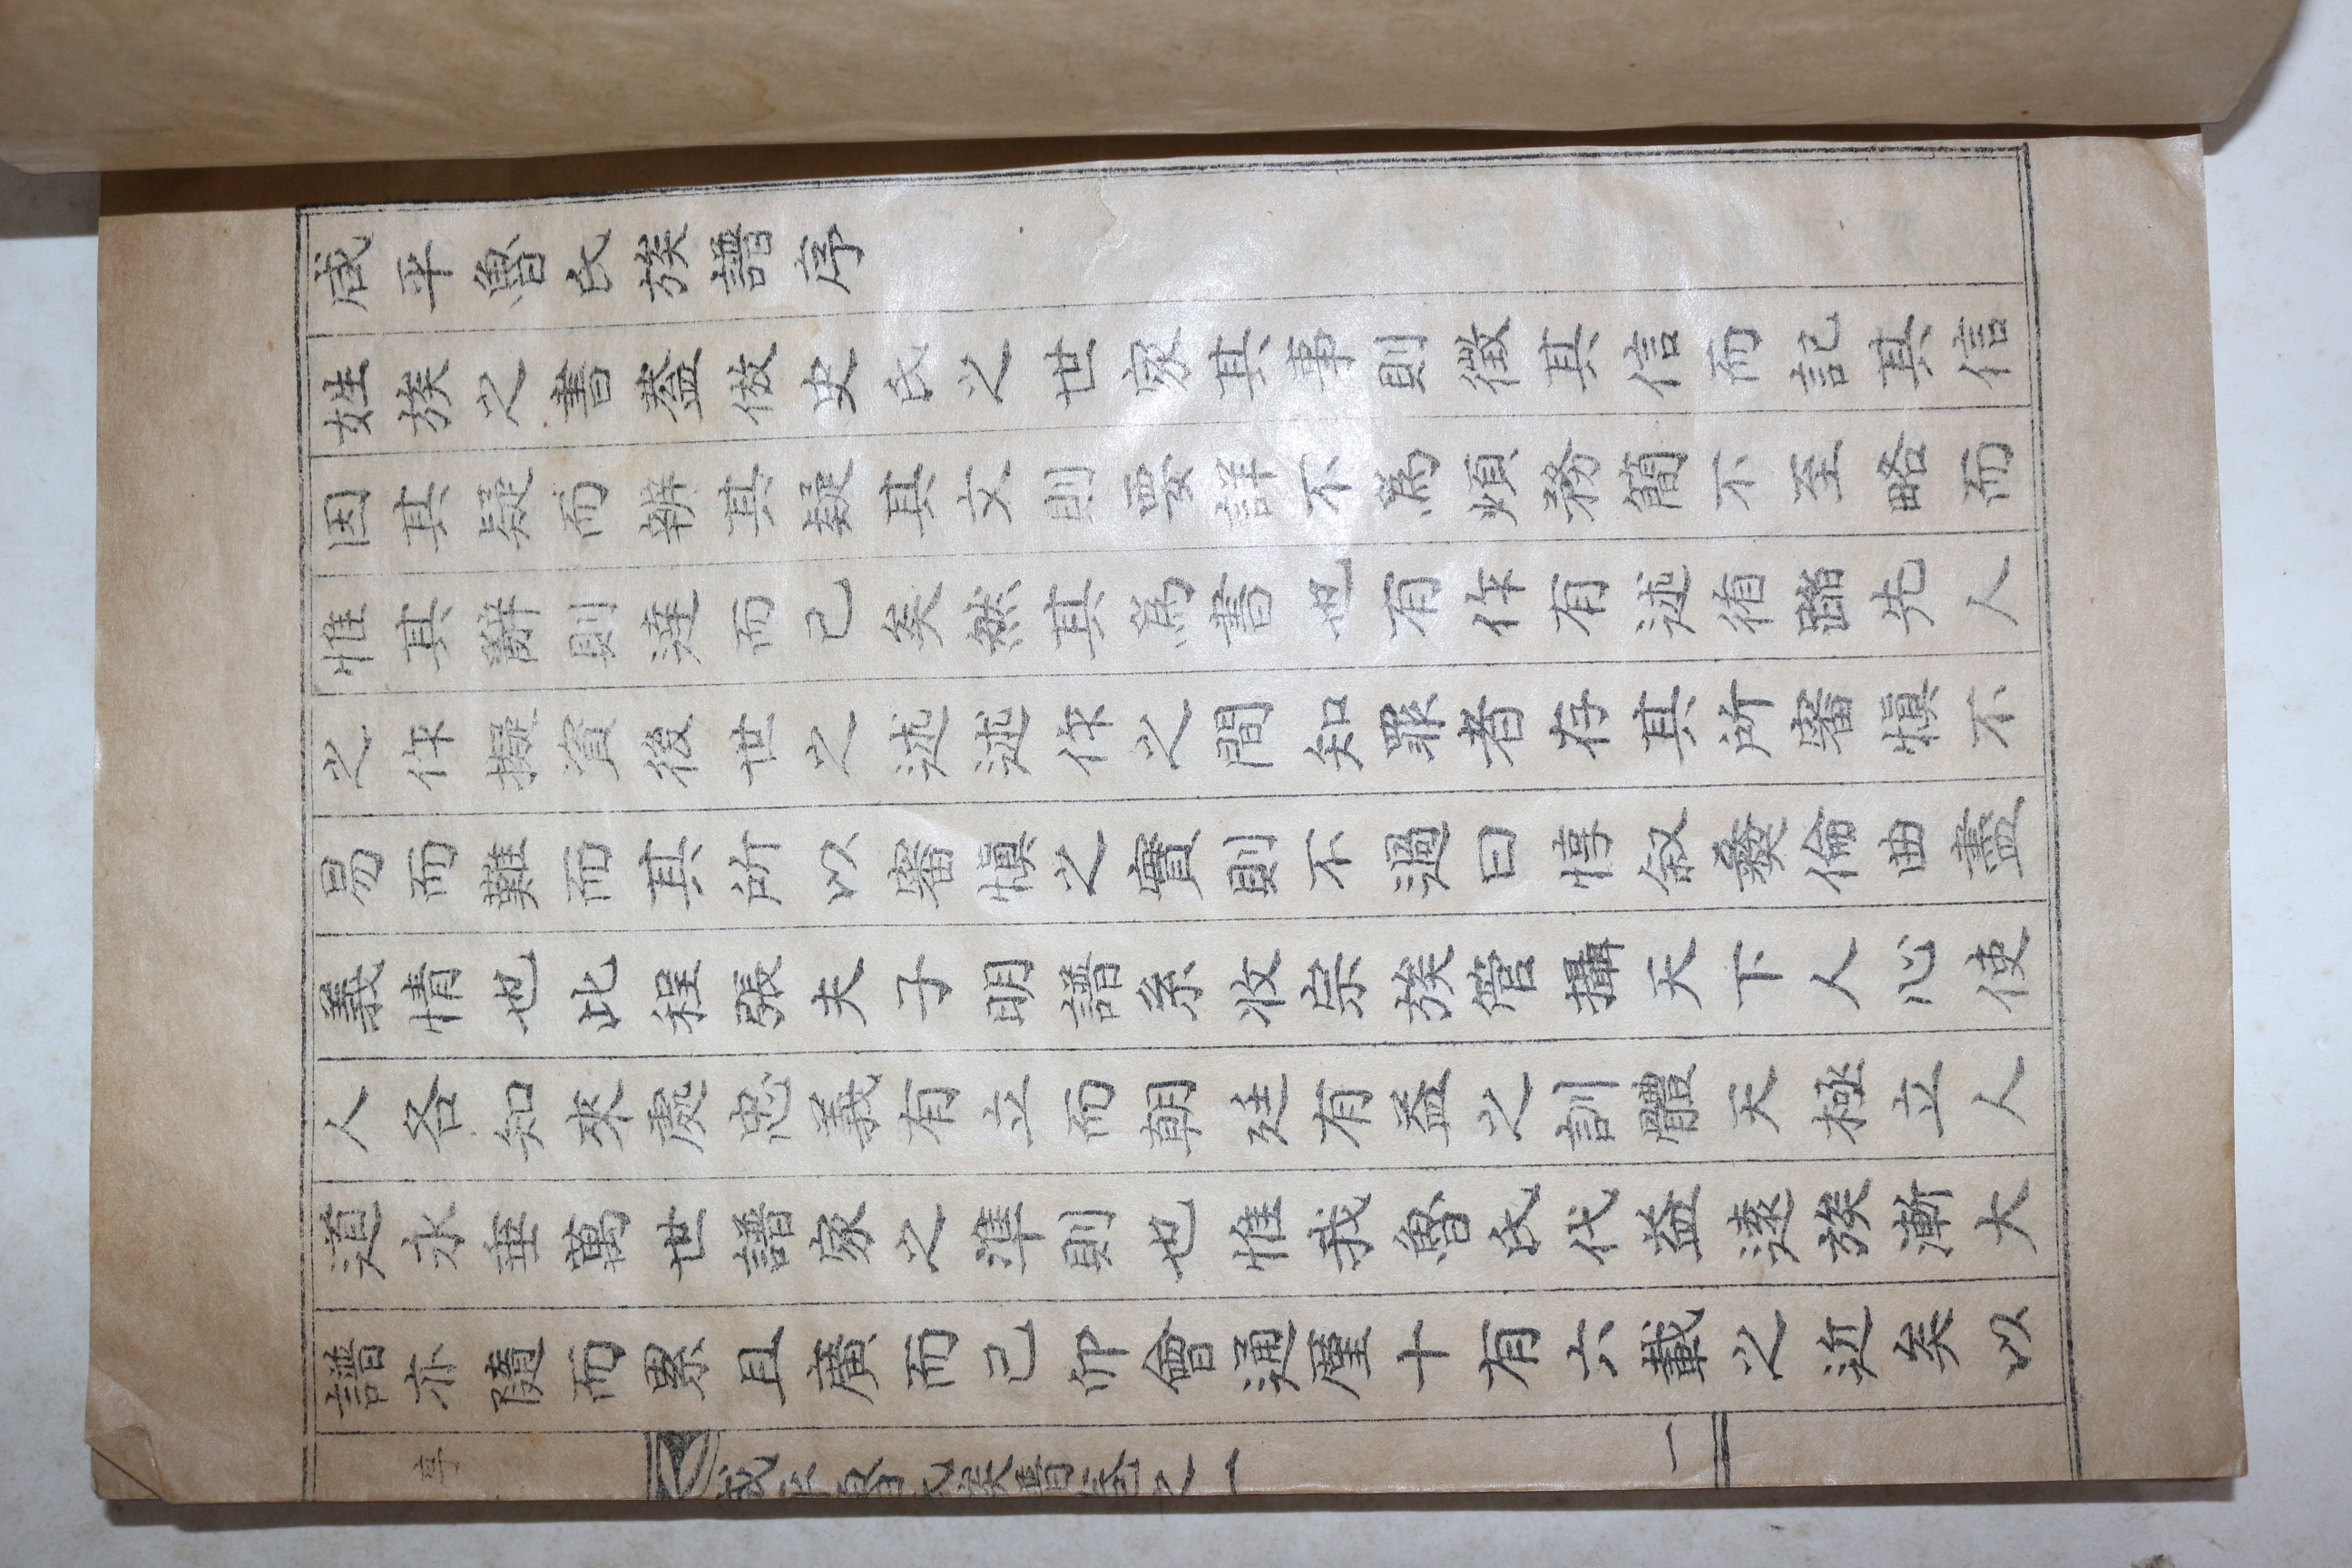 咸平魯氏族譜序
姓族之書盖倣史氏之世家其事則徵其信而記其信
因其疑而辨其疑其文則要詳不爲煩務簡不至略而
惟其辭則達而已矣然其爲書也有作有述脩蹈先人
之作擬資後世之述述作之間知罪者存其所審愼不
易而難而其所以審愼之實則不過曰惇叙彜倫曲盡
義情也此程張夫子明譜系收宗族管攝天下人心使
人各知來處忠義有立而朝廷有益之訓體天極立人
道永垂萬世譜家之準則也惟我魯氏代益遠族漸大
譜亦隨而累且廣而己卯會通厪十有六載之近矣以
序 咸平魯氏族譜卷之一 一